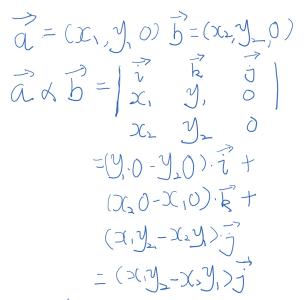 a⃗ = (x₁, y₁, 0) b⃗ = (x₂, y₂, 0)
a⃗ × b⃗ = | i⃗ k⃗ j⃗
x₁ y₁ 0 |
x₂ y₂ 0
= (y₁·0 - y₂0)·i⃗ +
(x₂0 - x₁0)·k⃗ +
(x₁y₂ - x₂y₁)·j⃗
= (x₁y₂ - x₂y₁)j⃗